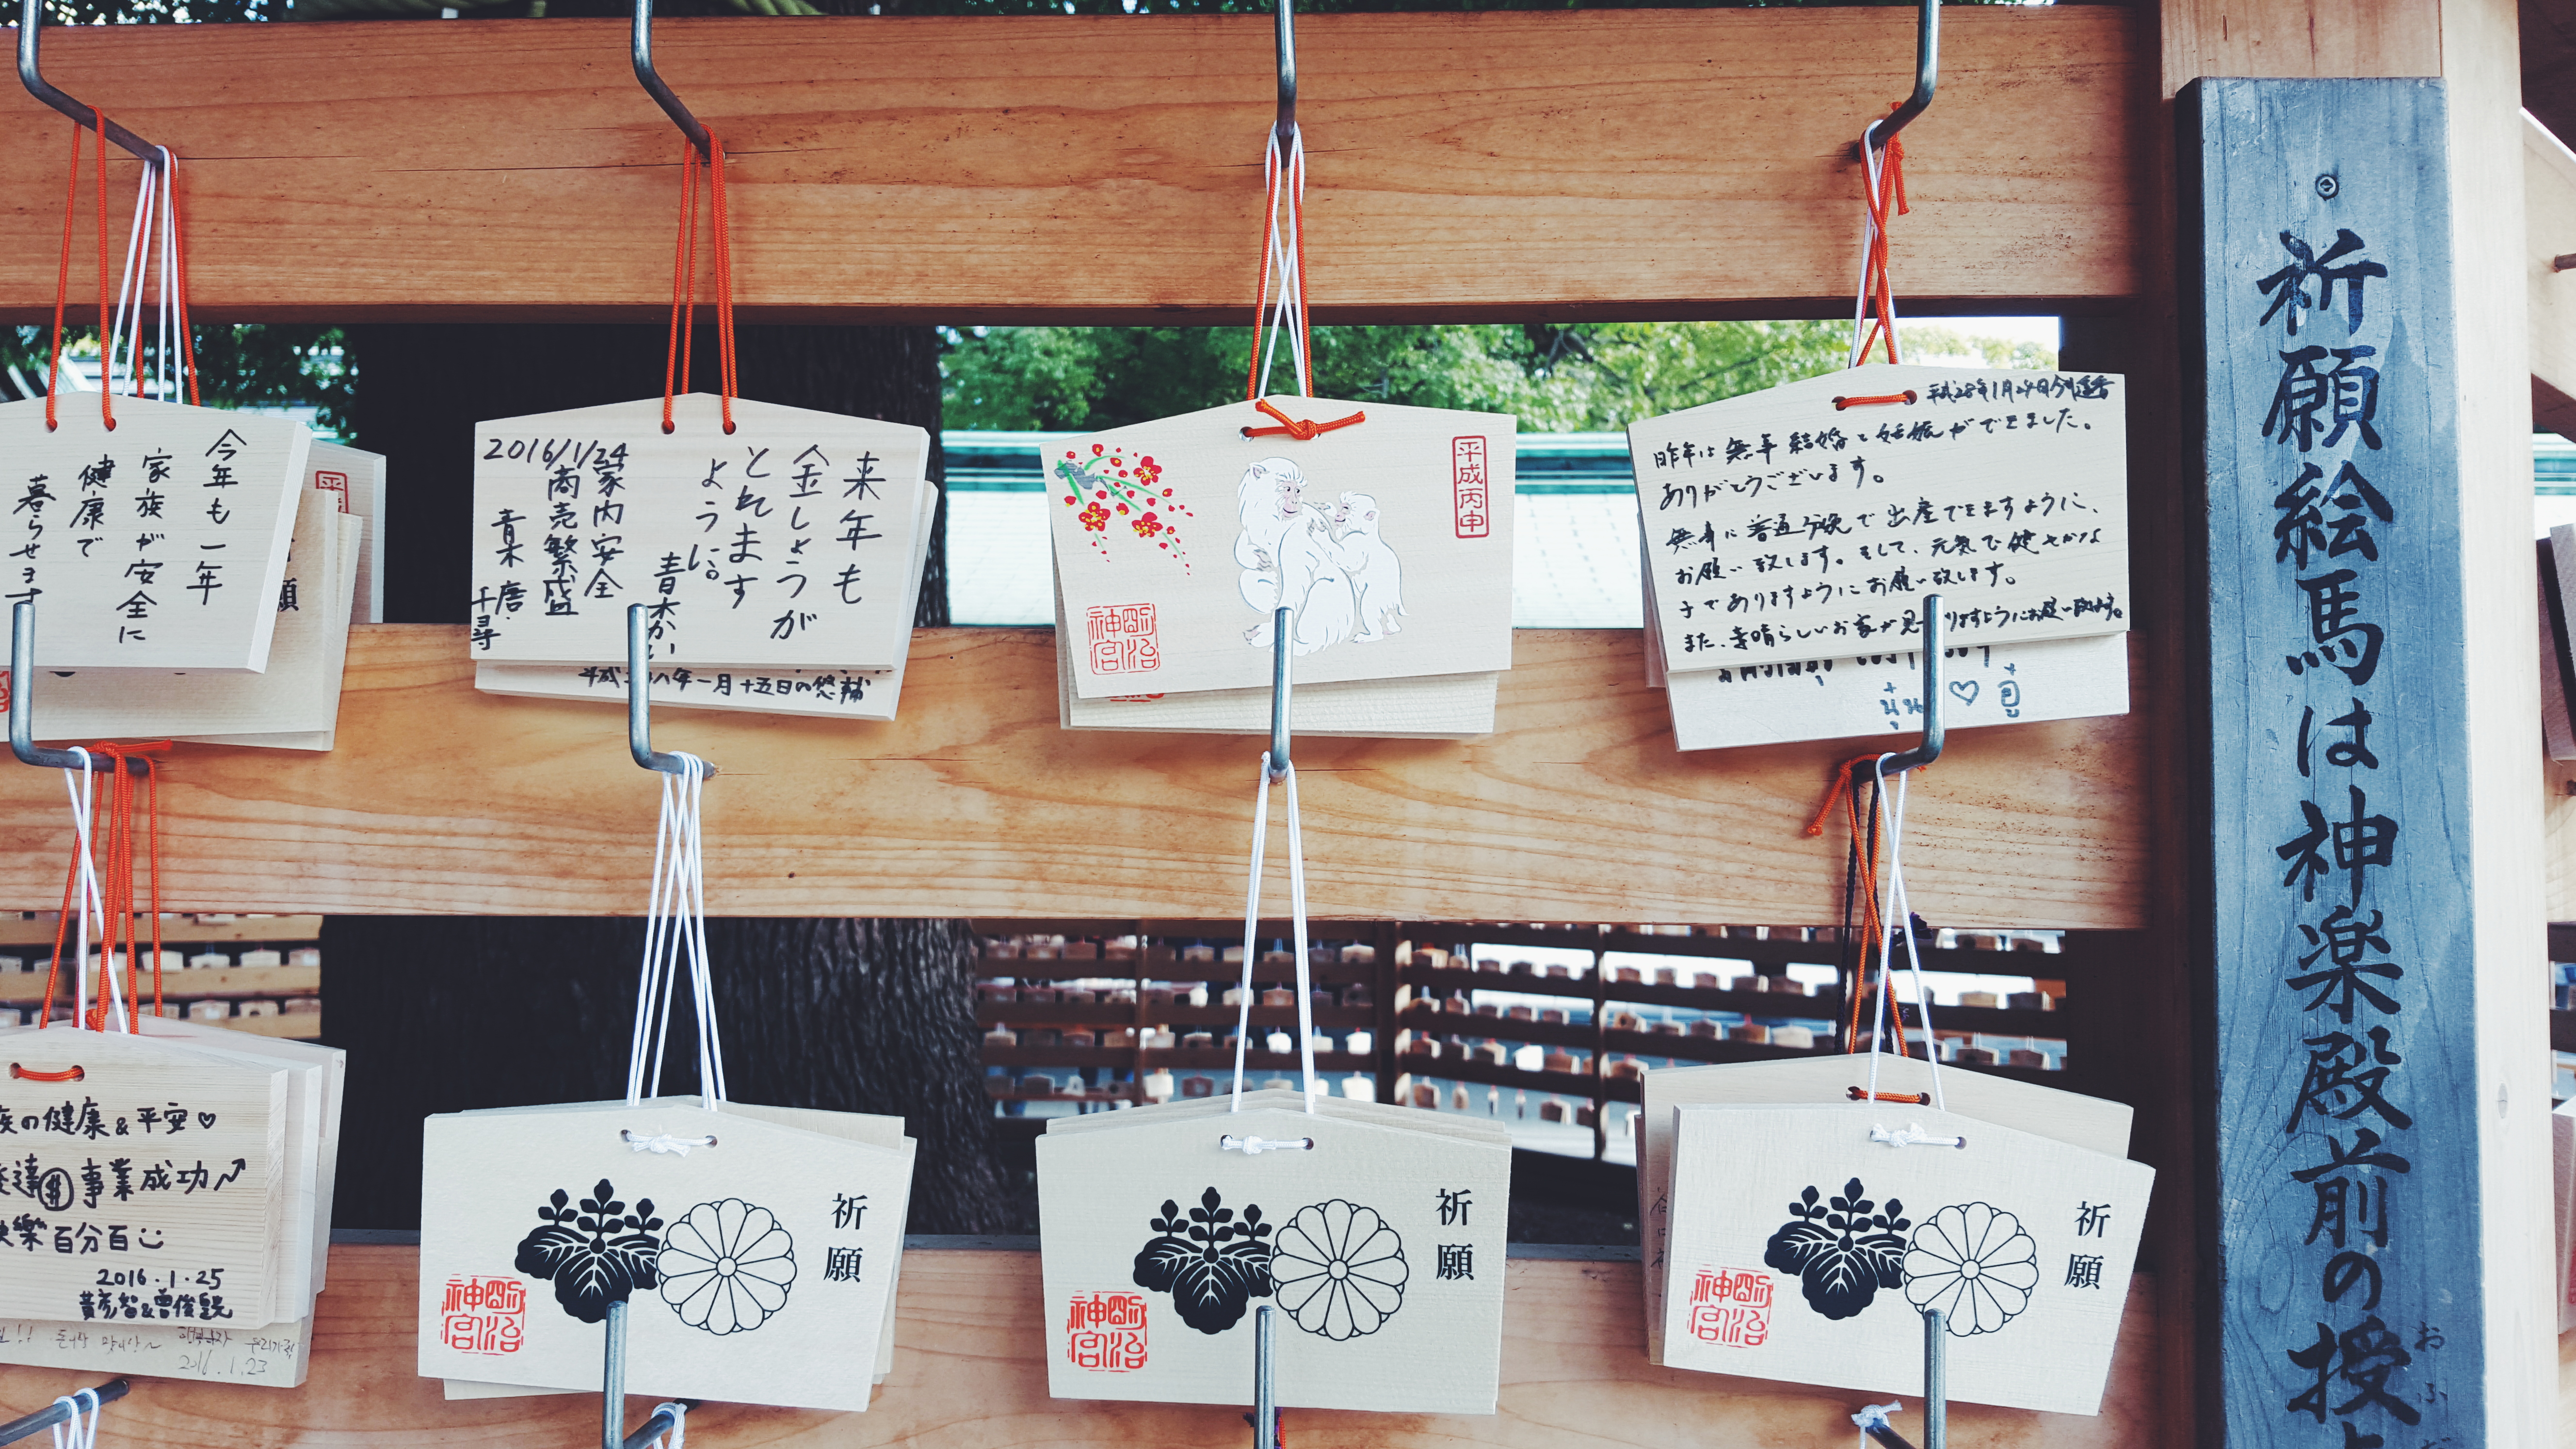 今年も一年
家族が安全に
健康で
暮らせます
来年も
金しょうが
とれます
ように。
青木かい
2016/1/24
家内安全
商売繁盛
青木 唐.
千尋
平成二十八年一月十五日の悠輔
平成丙申
明治
神宮
平成28年1月24日
昨年は無事結婚と妊娠ができました。
ありがとうございます。
無事に普通分娩で出産できますように、
お願い致します。そして、元気で健やかな
子でありますようにお願い致します。
また、素晴らしいお家が見つりますようにお願い致します。
♡ อู๋
願
族の健康&平安♡
達 事業成功
快樂百分百
2016.1.25
2016.1.23
祈願
明治
神宮
祈願
明治
神宮
祈願
明治
神宮
祈願絵馬は神楽殿前の授